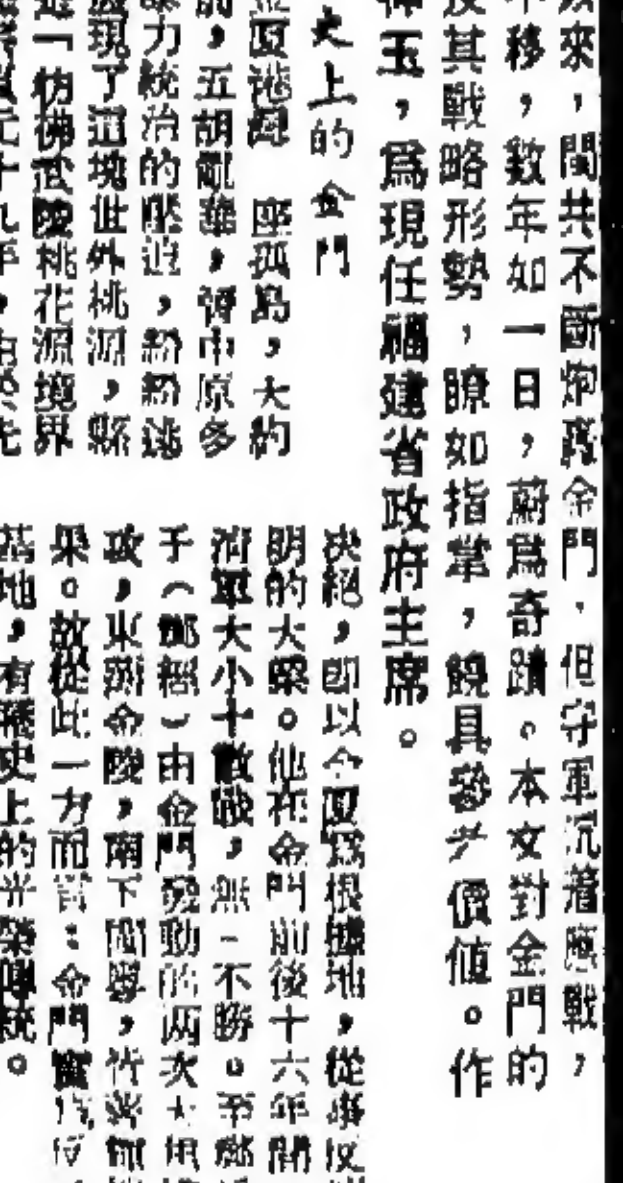 來,閩共不斷炮轟金門,但守軍沉着應戰,
移,數年如一日,蔚爲奇蹟。本文對金門的
其戰略形勢,瞭如指掌,饒具參攷價值。作
玉,爲現任福建省政府主席。
史上的金門
座孤島,大約
,五胡亂華,中原多
力統治的壓迫,紛紛逃
現了這塊世外桃源,
一彷彿武陵桃花源境界
决絕,即以金厦爲根據地,從事反
明的大業。他在金門前後十六年間
清軍大小十數戰,無一不勝。至鄭
子(鄭經)由金門發動的两次大規
攻,東溯金陵,南下閩粤,
果。故從此一方面言:金門實
基地,有歷史上的光榮傳統。